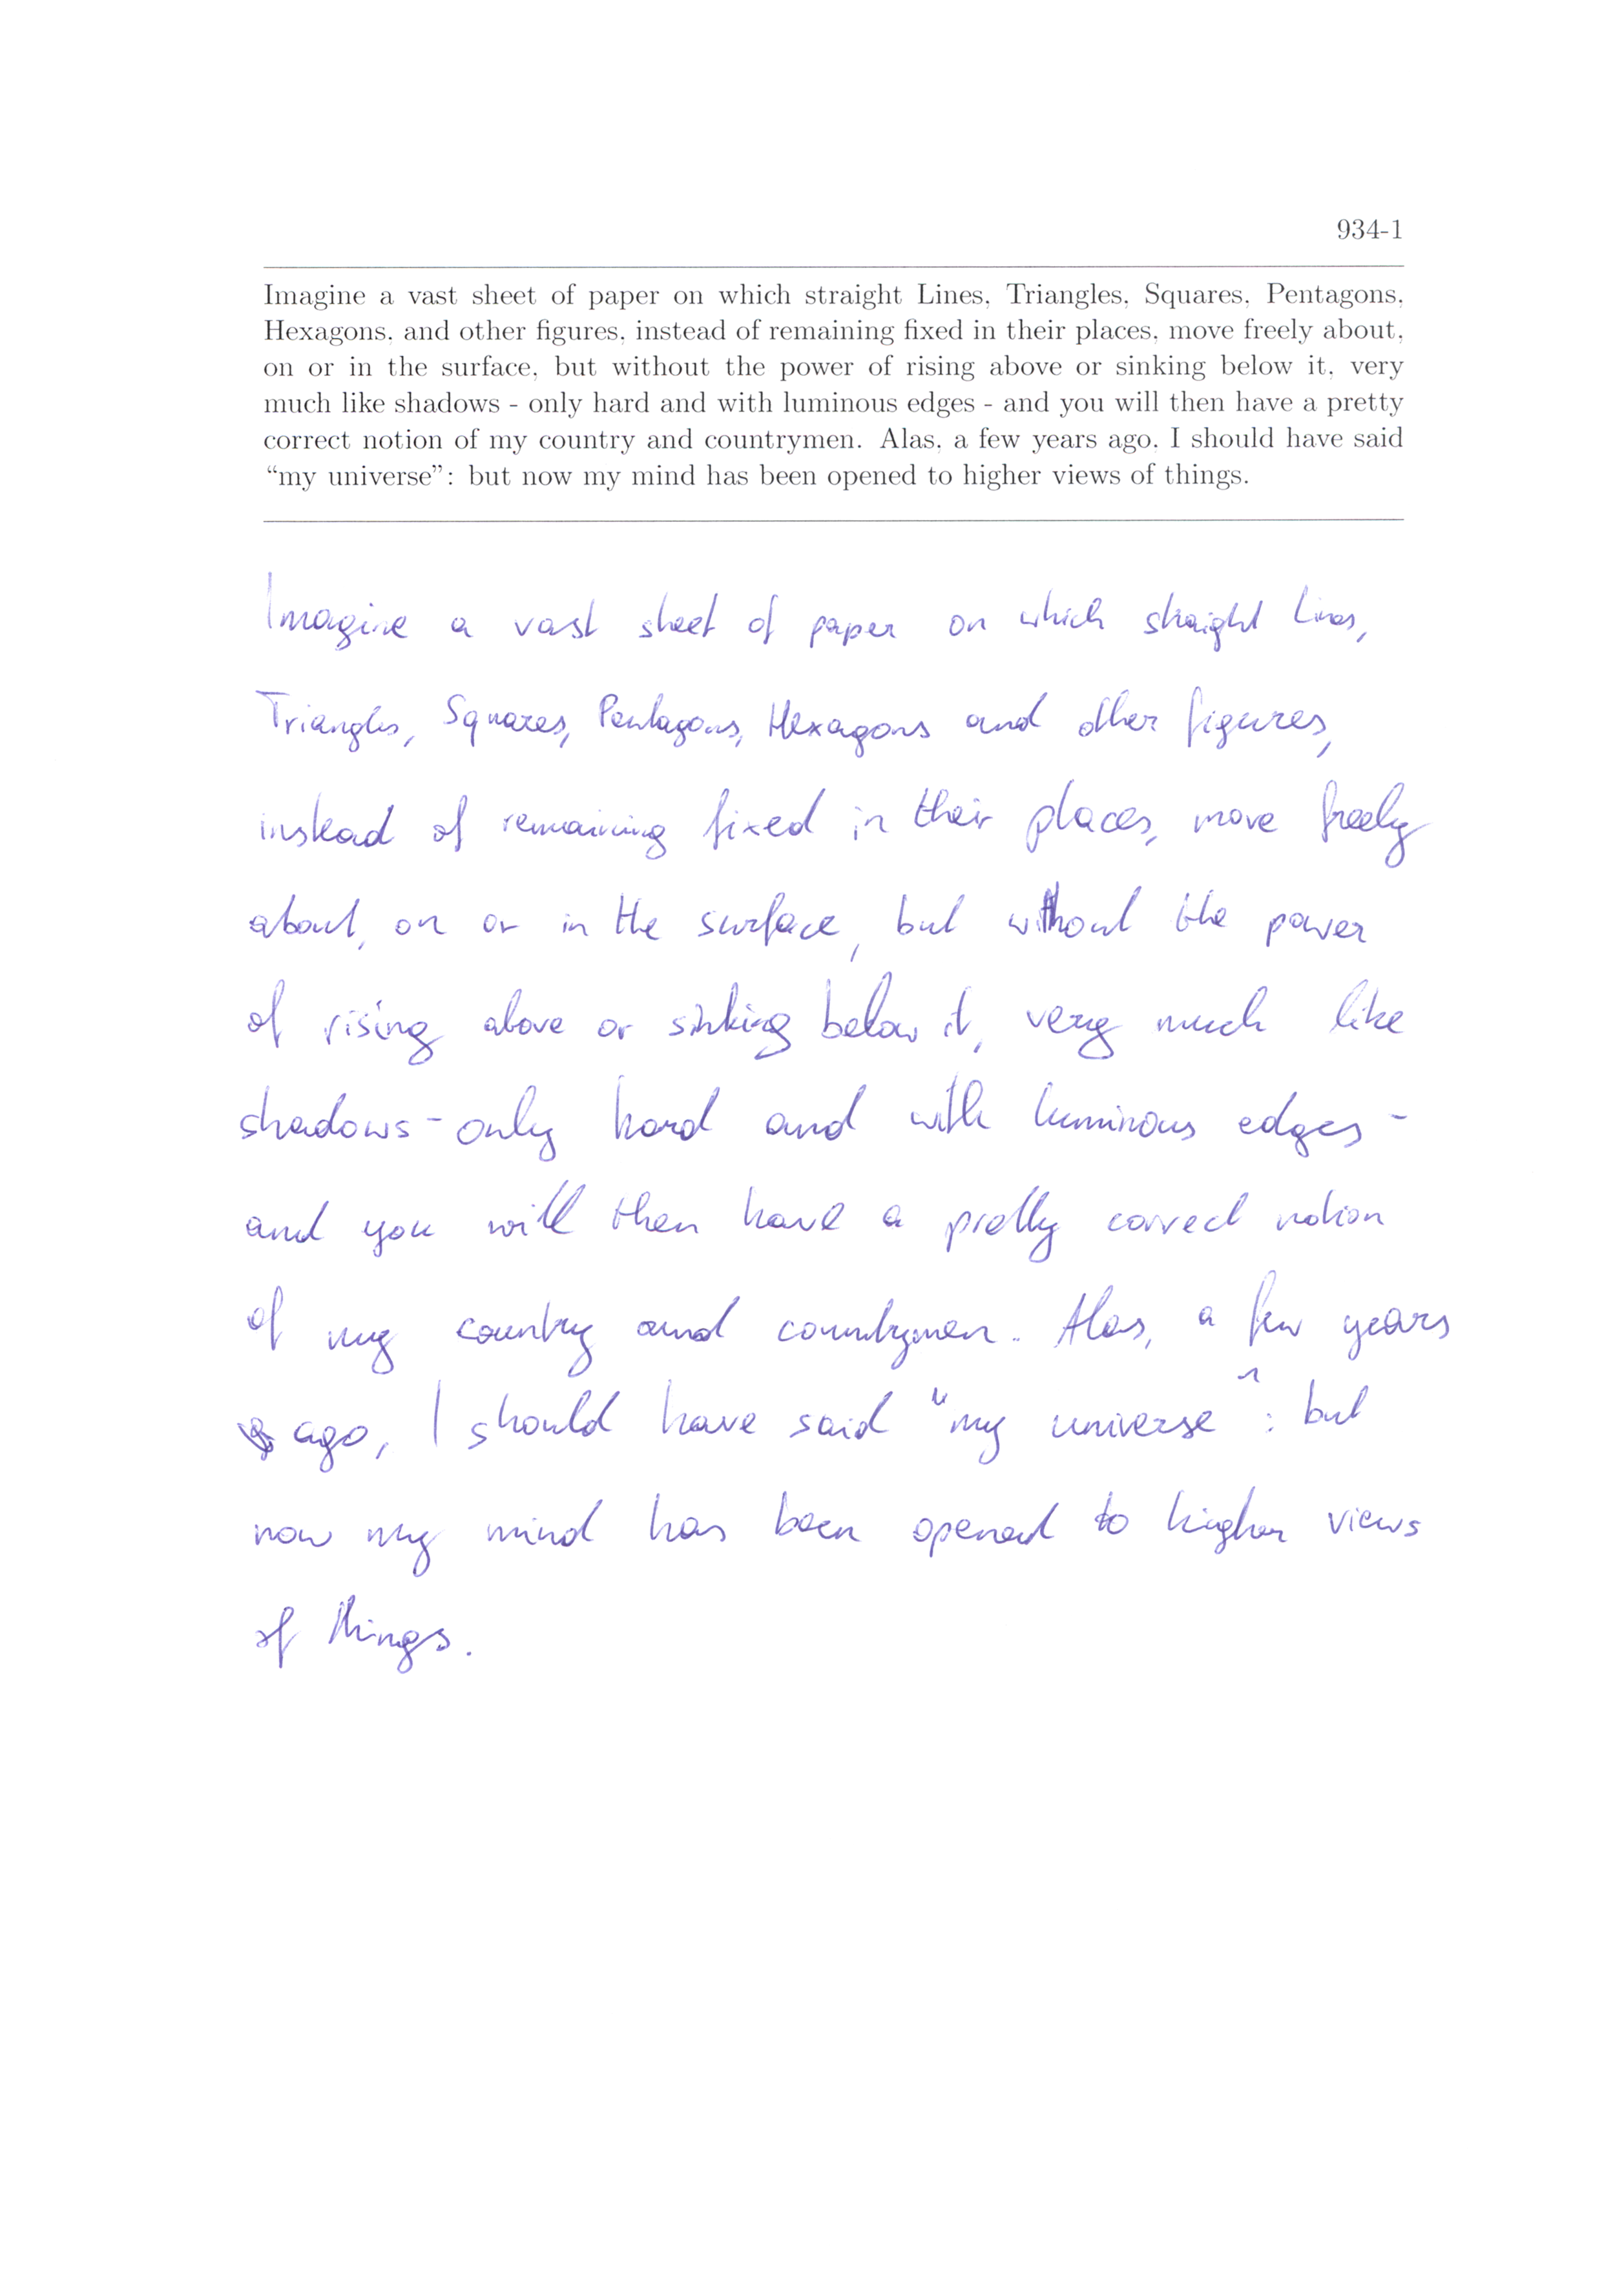 934-1
Imagine a vast sheet of paper on which straight Lines, Triangles, Squares, Pentagons,
Hexagons, and other figures, instead of remaining fixed in their places, move freely about,
on or in the surface, but without the power of rising above or sinking below it, very
much like shadows - only hard and with luminous edges - and you will then have a pretty
correct notion of my country and countrymen. Alas, a few years ago, I should have said
“my universe”: but now my mind has been opened to higher views of things.
Imagine a vast sheet of paper on which straight Lines,
Triangles, Squares, Pentagons, Hexagons and other figures,
instead of remaining fixed in their places, move freely
about, on or in the surface, but without the power
of rising above or sinking below it, very much like
shadows - only hard and with luminous edges -
and you will then have a pretty correct notion
of my country and countrymen. Alas, a few years
ago, I should have said "my universe": but
now my mind has been opened to higher views
of things.